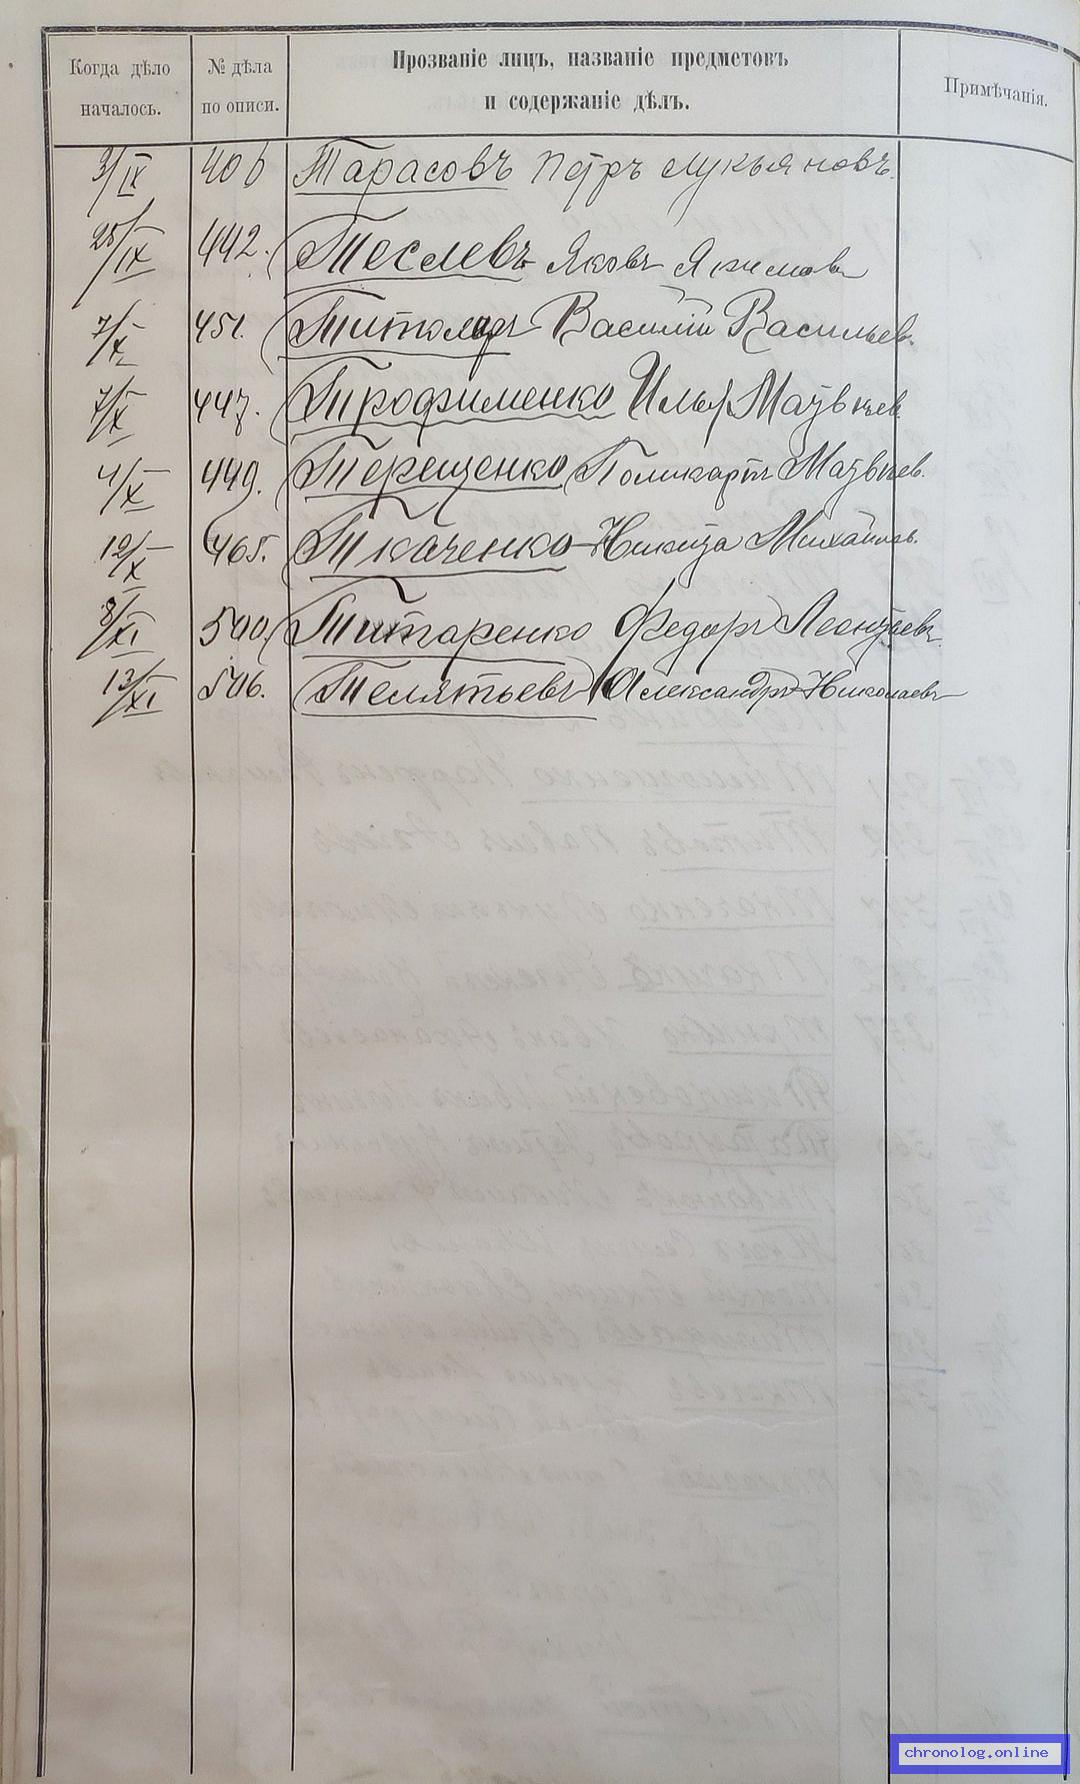 Когда дѣло началось.
№ дѣла по описи.
Прозваніе лицъ, названіе предметовъ
и содержаніе дѣлъ.
Примѣчанія.
3/IX 406 Тарасовъ Петръ Лукьяновъ.
25/IX 442. Теслевъ Яковъ Якимовъ
7/X 451. Василій Васильев.
7/X 447. Трофименко Илья Матвѣев
4/X 449. Терещенко Поликарпъ Матвѣев.
12/X 465. Ткаченко Никита Михайловъ.
8/XI 500. Титаренко Федоръ Леонтьевъ
13/XI 506. Телятьевъ Александръ Николаевъ
chronolog.online